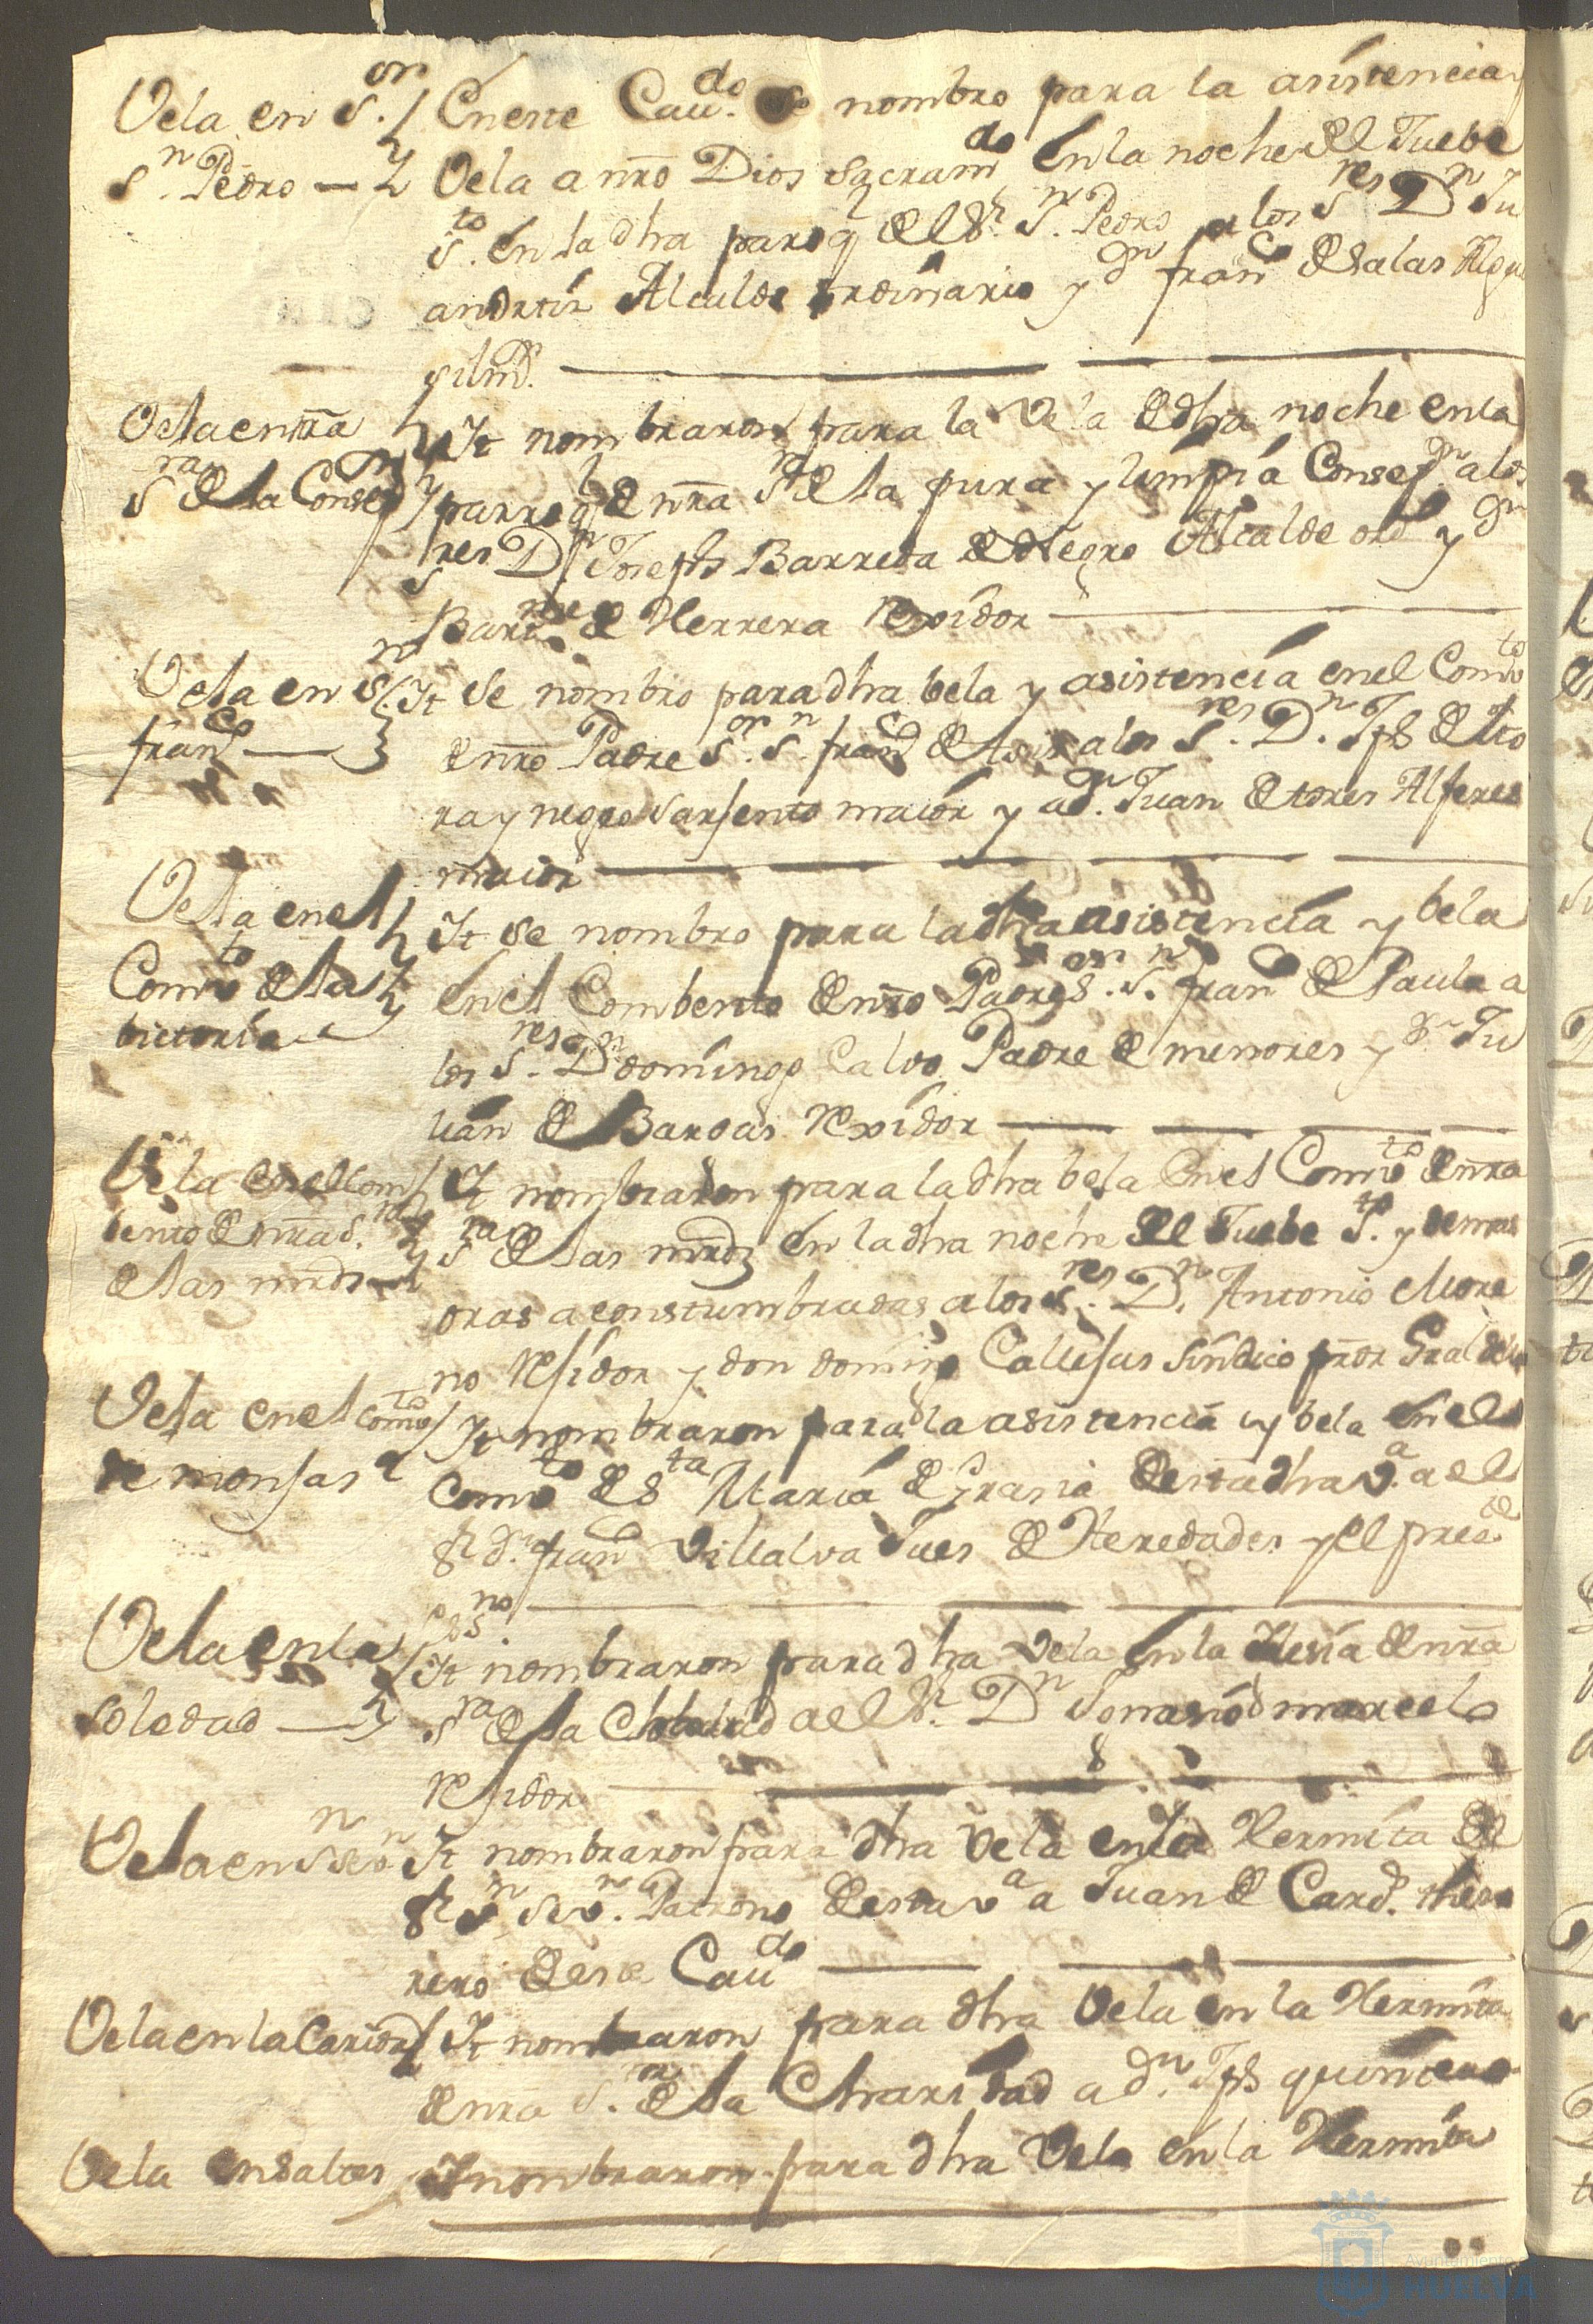 Vela en S.or
S.n Pedro
En este Cau.do se nombro para la asistencia y
Vela a nro Dios sacramdo en la noche del Juebe
S.to en la dha parroq del Sr. S.n Pedro a los S.res D.n Ju
an ortiz Alcalde ordinario y d.n fran.co de salas Algua
sil m.or
Vela en nra
S.ra de la Consep.n
It nombraron para la Vela de dha noche en la
parroq de nra S.ra de la pura y limpia Consep.n a los
S.res D.n Joseph Barreda de Negro Alcalde ord y d.n
Bar.me de Herrera Rexidor
Vela en S.n
fran.co
It se nombro para dha bela y asistencia en el Comv.to
de nro Padre S.or S.n fran.co de Asis a los S.res D.n Jph de to
ra y negro sarjento maior y a d.n Juan de tores Alferes
maior
Vela en el
Comv.to de la
bictoria
It se nombro para la dha asistencia y bela
en el Combento de nro Padre S.or S.n fran.co de Paula a
los S.res D.n domingo Calvo Padre de menores y d.n Ju
lian de Bargas Rexidor
Vela en el Com
bento de nra S.ra
de las mrds
It nombraron para la dha bela en el Comv.to de nra
S.ra de las mrds en la dha noche del Juebe S.to y demas
oras aconstumbradas a los S.res D.n Antonio More
no Rejidor y don domingo Callejas sindico pror Gral
Vela en el comv.to
de monjas
It nombraron para la asistencia y bela en el
Comv.to de S.ta Maria de Grasia de esta dha v.a a el
Sr d.n fran.co Villalva Jues de Heredades y el pres.te
es.no
Vela en la
soledad
It nombraron para dha Vela en la Iglesia de nra
S.ra de la Soledad a el Sr. D.n Ignasio de marcelo
Rejidor
Vela en S.n Seb.n
It nombraron para dha Vela en la Hermita de
Sr S.n Seb.n Patrono de esta v.a a Juan de Card. theso
rero de este Cau.do
Vela en la Caridad
It nombraron para dha Vela en la Hermita
de nra S.ra de la Charidad a d.n Jph quintero
Vela en saltes
It nombraron para dha Vela en la Hermita
Ayuntamiento
HUELVA